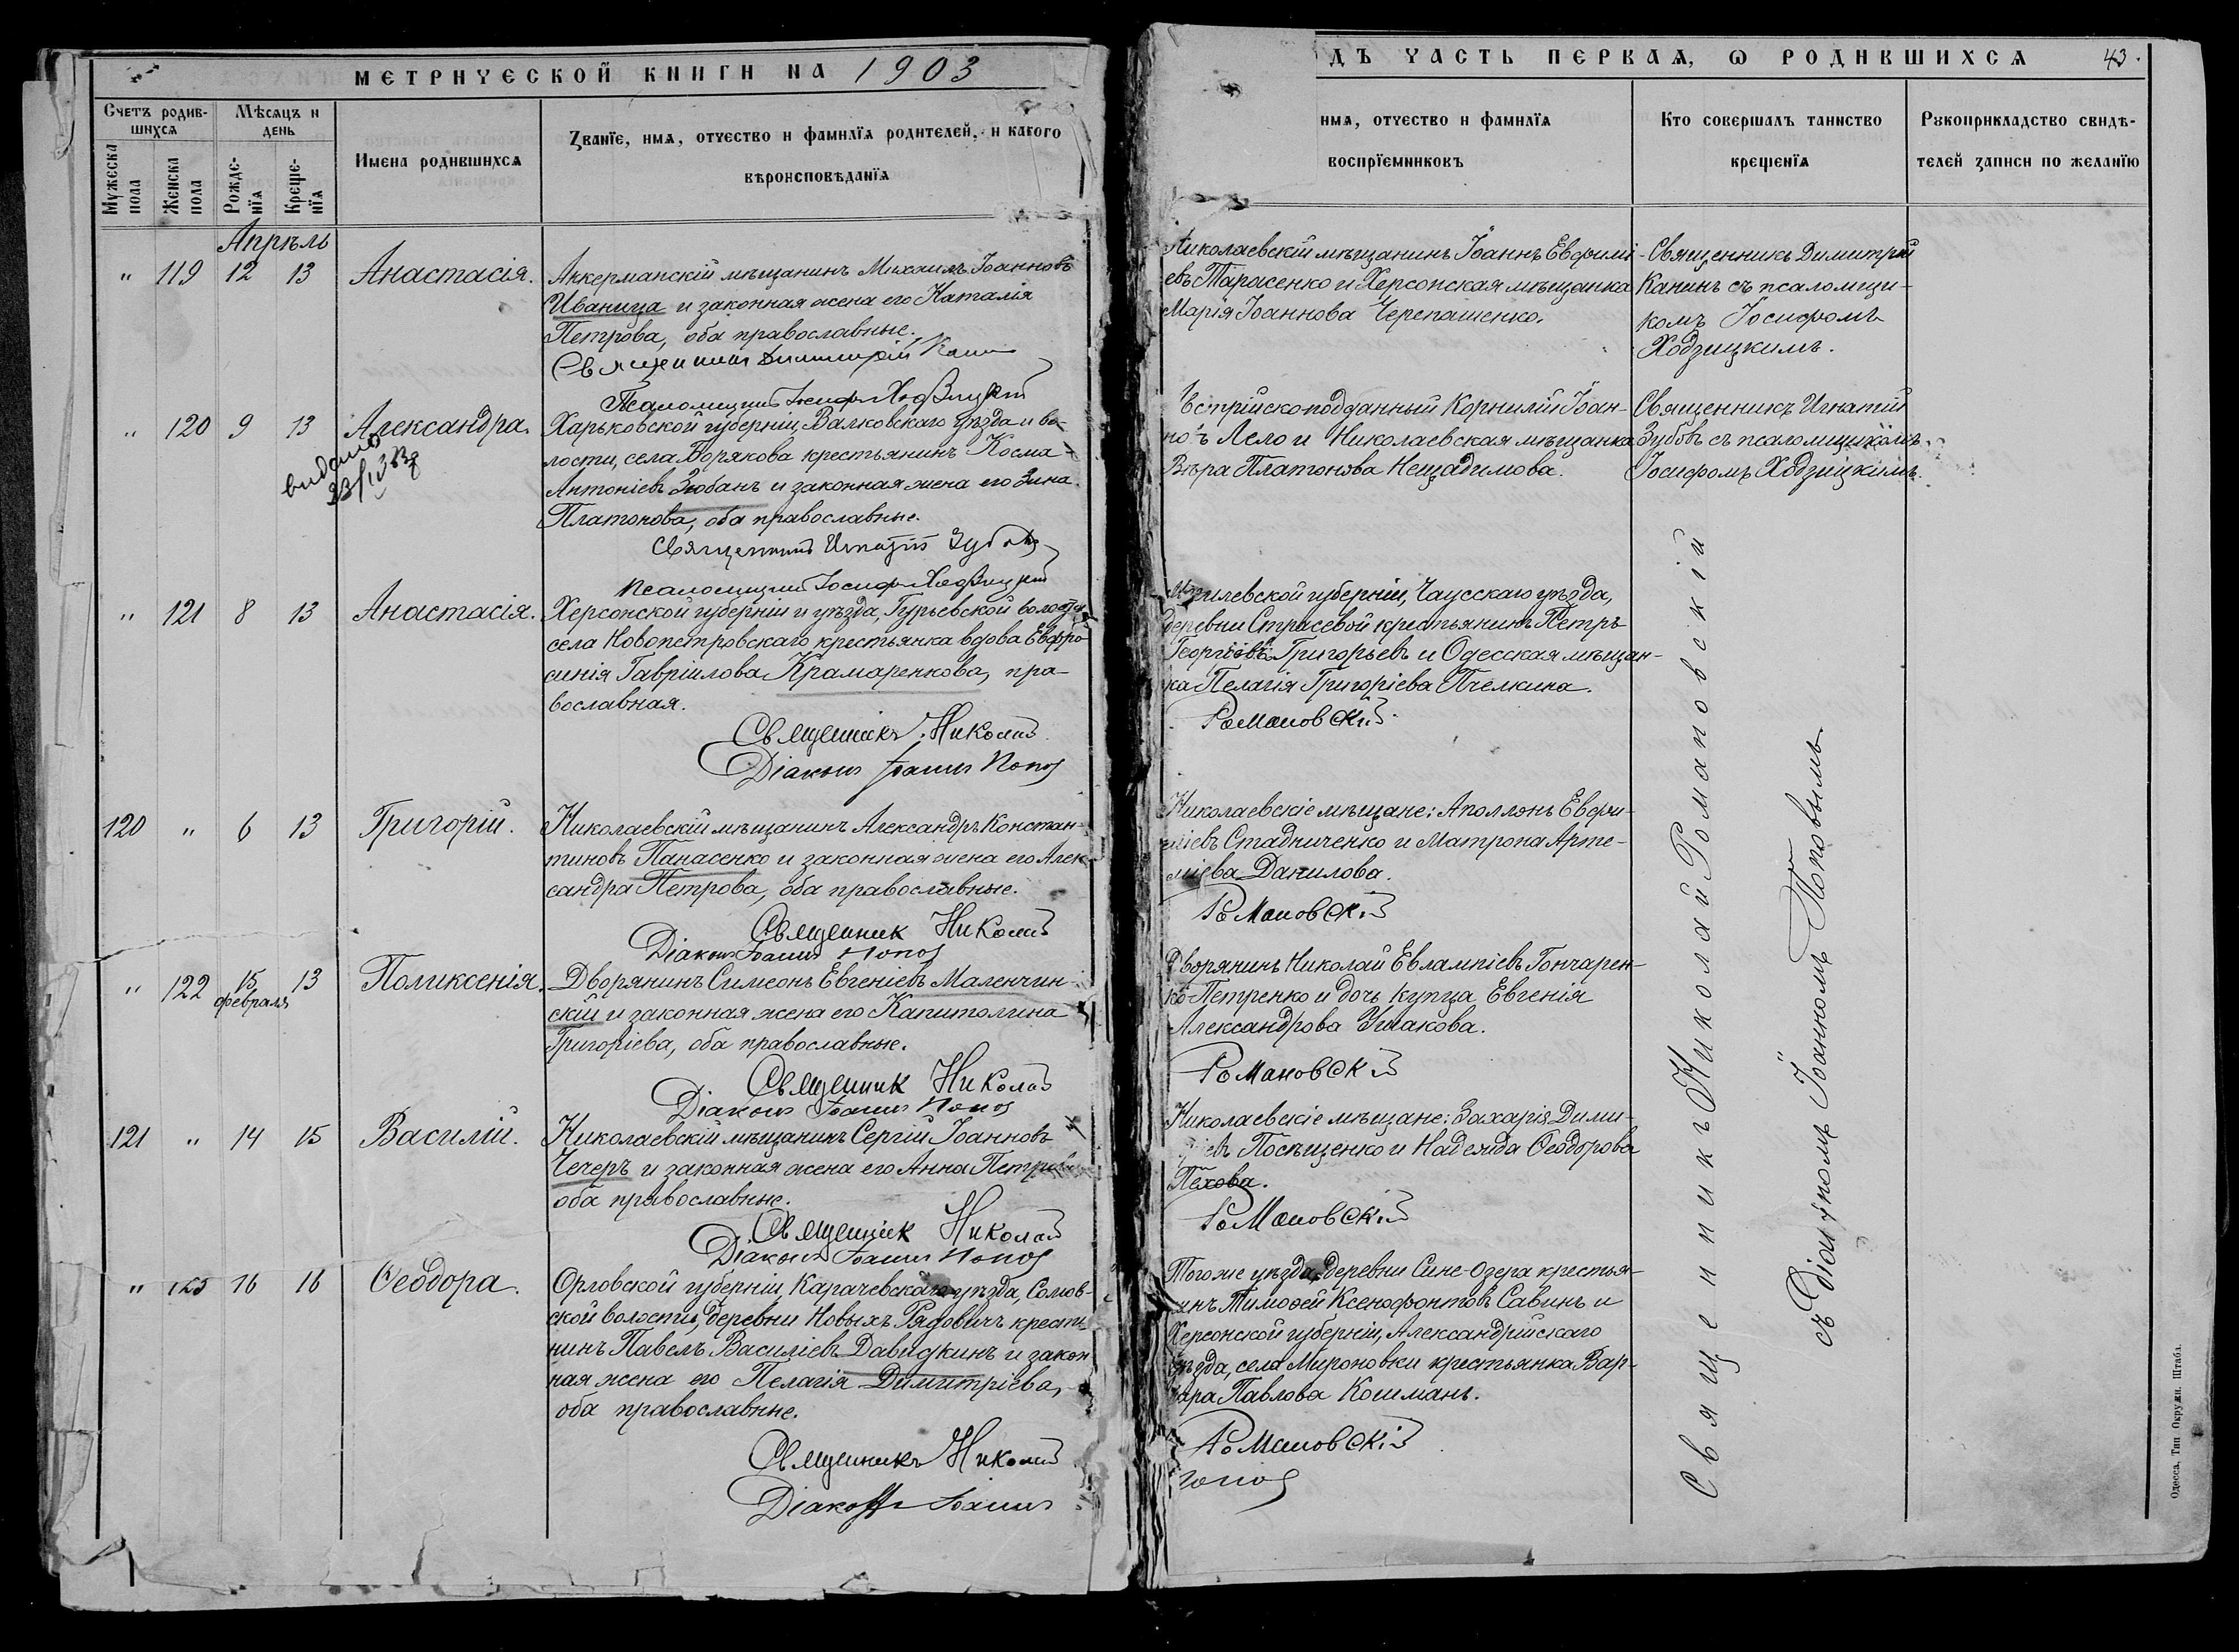 МЕТРИЧЕСКОЙ КНИГИ НА 1903
Счетъ родив-
шихся
Мѣсяцъ и
день
Мужеска
пола
Женска
пола
Рожде-
нія
Креще-
нія
Имена родившихся
Званіе, имя, отчество и фамилія родителей, и какого
вѣроисповѣданія
Апрѣль
" 119 12 13 Анастасія.
Аккерманскій мѣщанинъ Михаилъ Іоанновъ
Иваница и законная жена его Наталія
Петрова, оба православные.
Священникъ Димитрій
Псаломщикъ Іосифъ Ходзицкій
" 120 9 13 Александра.
видано
Харьковской губерніи, Валковскаго уѣзда и во-
лости, села Борякова крестьянинъ Косма
Антоніевъ Зюбанъ и законная жена его Зина
Платонова, оба православные.
Священникъ Игнатій Зубовъ
Псаломщикъ Іосифъ Ходзицкій
" 121 8 13 Анастасія.
Херсонской губерніи и уѣзда, Гурьевской волости
села Новопетровскаго крестьянка вдова Евфро-
синія Гавріилова Крамаренкова, пра-
вославная.
Священникъ Николай
Діаконъ Іоаннъ Попов
120 " 6 13 Григорій.
Николаевскій мѣщанинъ Александръ Констан-
тиновъ Панасенко и законная жена его Алек-
сандра Петрова, оба православные.
Священник Николай
Діаконъ Іоаннъ Попов
" 122 15 13 Поликсенія.
февраля
Дворянинъ Симеонъ Евгеніевъ Маленчин-
скій и законная жена его Капитолина
Григоріева, оба православные.
Священник Николай
Діаконъ Іоаннъ Попов
121 " 14 15 Василій.
Николаевскій мѣщанинъ Сергій Іоанновъ
Чечеръ и законная жена его Анна Петрова
оба православные.
Священник Николай
Діаконъ Іоаннъ Попов
" 123 16 16 Ѳеодора.
Орловской губерніи, Карачевскаго уѣзда,
ской волости, деревни Новыхъ Рядовичъ крестья-
нинъ Павелъ Василіевъ Давидкинъ и закон
ная жена его Пелагія Димитріева,
оба православные.
Священникъ Николай
Діаконъ Іоаннъ
ДЪ ЧАСТЬ ПЕРВАЯ, Ѡ РОДИВШИХСЯ 43.
имя, отчество и фамилія
воспріемниковъ
Кто совершалъ таинство
крещенія
Рукоприкладство свидѣ-
телей записи по желанію
Николаевскій мѣщанинъ Іоаннъ Евфимі-
евъ Тарасенко и Херсонская мѣщанка
Марія Іоаннова Черепашенко.
Священникъ Димитрій
Канинъ съ псаломщи-
комъ Іосифомъ
Ходзицкимъ.
встрійскоподданный Корнилій Іоан-
новъ Лело и Николаевская мѣщанка
Вѣра Платонова Нещадимова.
Священникъ Игнатій
Зубовъ съ псаломщикомъ
Іосифомъ Ходзицкимъ.
Могилевской губерніи, Чаусскаго уѣзда,
деревни Страсевой крестьянинъ Петръ
Георгіевъ Григорьевъ и Одесская мѣщан-
ка Пелагія Григоріева Пчелкина.
Романовскій
Николаевскіе мѣщане: Аполлонъ Евфи-
міевъ Стадниченко и Матрона Арте-
міева Данилова.
Романовскій
Дворянинъ Николай Евлампіевъ Гончарен-
ко-Петренко и дочь купца Евгенія
Александрова Ушакова.
Романовскій
Николаевскіе мѣщане: Захарія Дими-
іевъ Посѣщенко и Надежда Ѳеодорова
Пехова.
Романовскій
Тогоже уѣзда, деревни Сине-Озера крестья-
нинъ Тимоѳей Ксенофонтовъ Савинъ и
Херсонской губерніи, Александрійскаго
уѣзда, села Мироновки крестьянка Вар-
вара Павлова Кошманъ.
Романовскій
Попов
Священникъ Николай Романовскій
съ Діакономъ Іоанномъ Поповымъ.
Одесса. Тип. Окружн. Штаба.